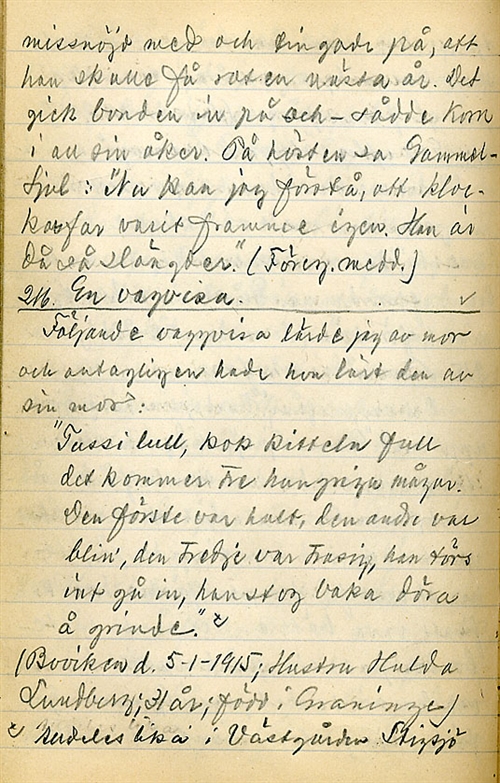 missnöjd med och tingade på, att
han skulle få roten nästa år. Det
gick bonden in på och - sådde korn
i all sin åker. Få hösten sa Gammel-
Sjul: "Nu kan jag förstå, att kloc-
karfar varit framme igen. Han är
då så slängder." (Föreg. medd.)
216. En vagvisa. √
Följande vaggvisa lärde jag av mor
och antagligen hade hon lärt den av
sin mor:
"Tussi lull, kok kitteln full
det kommer tre hungriga mågar.
Den förste var halt, den andre var
blin', den tredje var trasig, han törs
int gå in, han stog baka döra
å grinde."x
(Boviken d. 5-1-1915; Hustru Hulda
Lundberg; år; född i Graninge)
x Audeles lika i Västgården Stigsjö